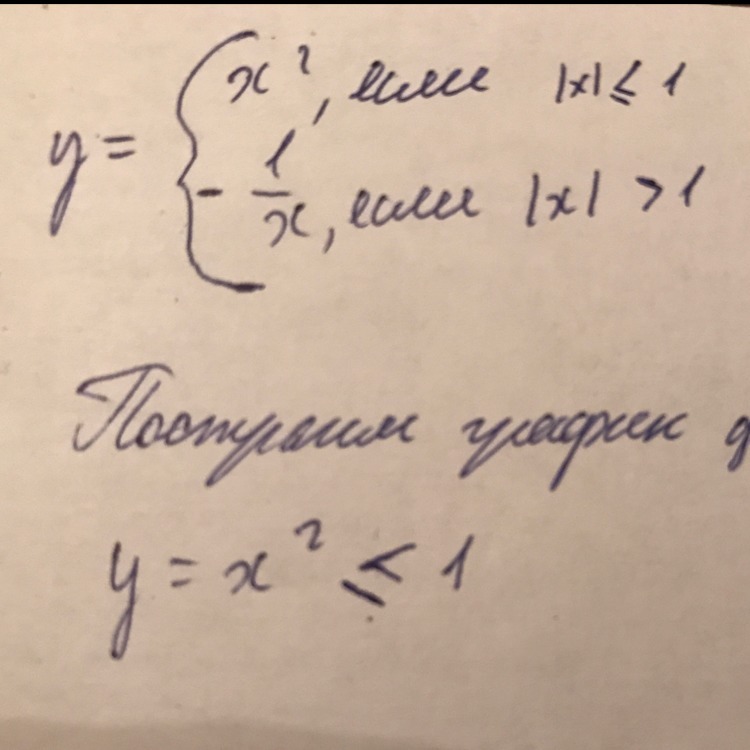 y = { x², если |x| ≤ 1
- 1/x, если |x| > 1
Построим график
y = x² ≤ 1